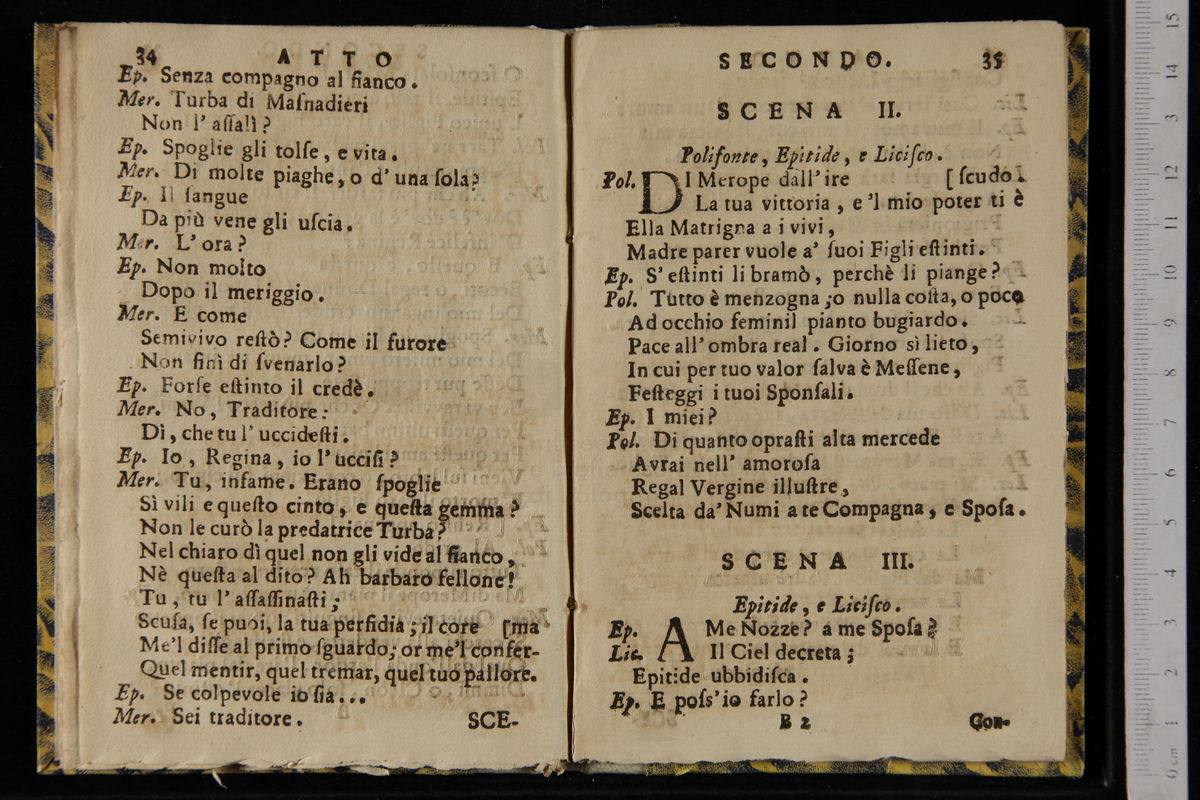 34 ATTO
Ep. Senza compagno al fianco.
Mer. Turba di Maſnadieri
Non l' aſſalì?
Ep. Spoglie gli tolſe, e vita.
Mer. Di molte piaghe, o d' una ſola?
Ep. Il ſangue
Da più vene gli uſcia.
Mer. L' ora?
Ep. Non molto
Dopo il meriggio.
Mer. E come
Semivivo reſtò? Come il furore
Non finì di ſvenarlo?
Ep. Forſe eſtinto il credè.
Mer. No, Traditore:
Dì, che tu l' uccideſti.
Ep. Io, Regina, io l' ucciſi?
Mer. Tu, infame. Erano ſpoglie
Sì vili e queſto cinto, e queſta gemma?
Non le curò la predatrice Turba?
Nel chiaro dì quel non gli vide al fianco,
Nè queſta al dito? Ah barbaro fellone!
Tu, tu l' aſſaſſinaſti;
Scuſa, ſe puoi, la tua perfidia; il core [ma
Me'l diſſe al primo ſguardo; or me'l confer-
Quel mentir, quel tremar, quel tuo pallore.
Ep. Se colpevole io ſia...
Mer. Sei traditore. SCE-
SECONDO. 35
SCENA II.
Polifonte, Epitide, e Liciſco.
Pol. DI Merope dall' ire [ſcudo.
La tua vittoria, e 'l mio poter ti è
Ella Matrigna a i vivi,
Madre parer vuole a' ſuoi Figli eſtinti.
Ep. S' eſtinti li bramò, perchè li piange?
Pol. Tutto è menzogna; o nulla coſta, o poco
Ad occhio feminil pianto bugiardo.
Pace all' ombra real. Giorno sì lieto,
In cui per tuo valor ſalva è Meſſene,
Feſteggi i tuoi Sponſali.
Ep. I miei?
Pol. Di quanto opraſti alta mercede
Avrai nell' amoroſa
Regal Vergine illuſtre,
Scelta da' Numi a te Compagna, e Spoſa.
SCENA III.
Epitide, e Liciſco.
Ep. A Me Nozze? a me Spoſa?
Lic. Il Ciel decreta;
Epitide ubbidiſca.
Ep. E poſs' io farlo?
B 2 Con-